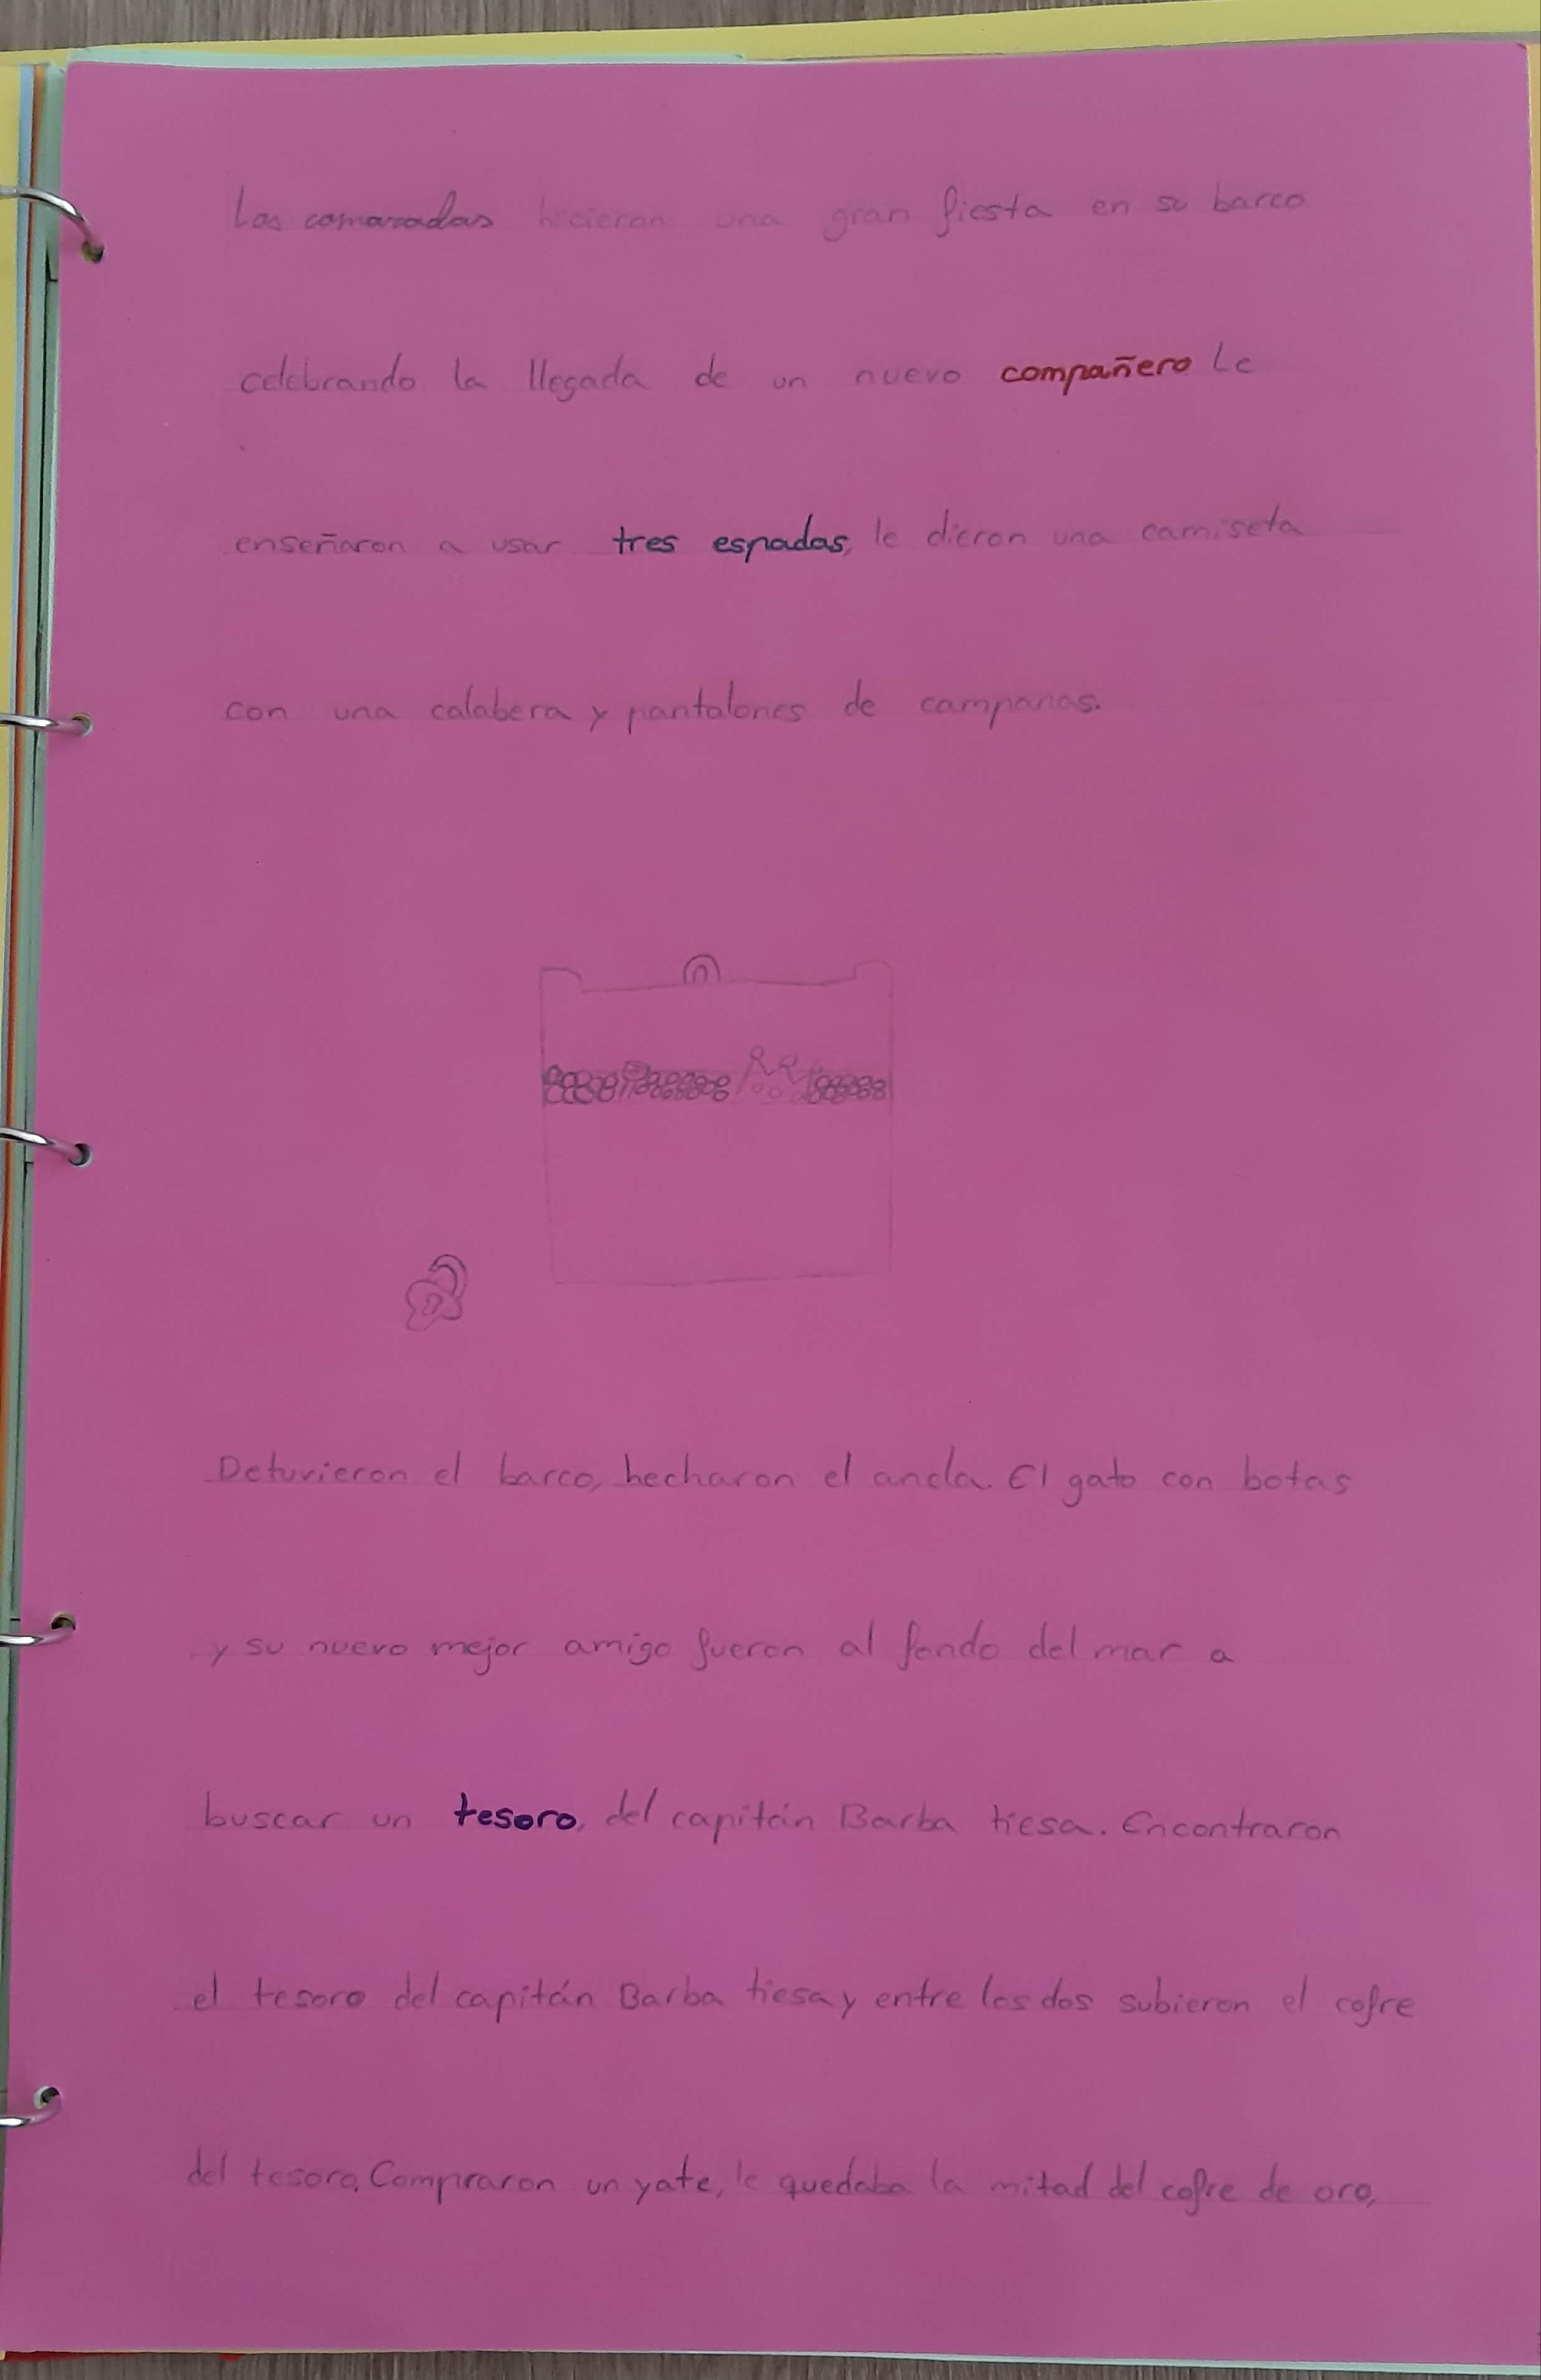 Los camaradas hicieron una gran fiesta en su barco
celebrando la llegada de un nuevo compañero Le
enseñaron a usar tres espadas, le dieron una camiseta
con una calabera y pantalones de campanas.
Detuvieron el barco, hecharon el ancla. El gato con botas
y su nuevo mejor amigo fueron al fondo del mar a
buscar un tesoro, del capitán Barba tiesa. Encontraron
el tesoro del capitán Barba tiesa y entre los dos subieron el cofre
del tesoro. Compraron un yate, le quedaba la mitad del cofre de oro,